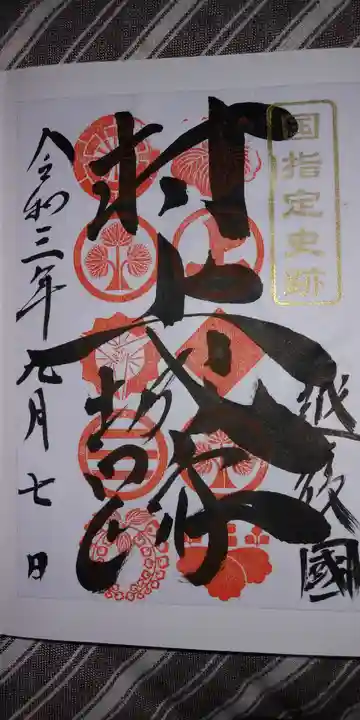 国指定史跡
越後國
村上城
登城
令和三年九月七日